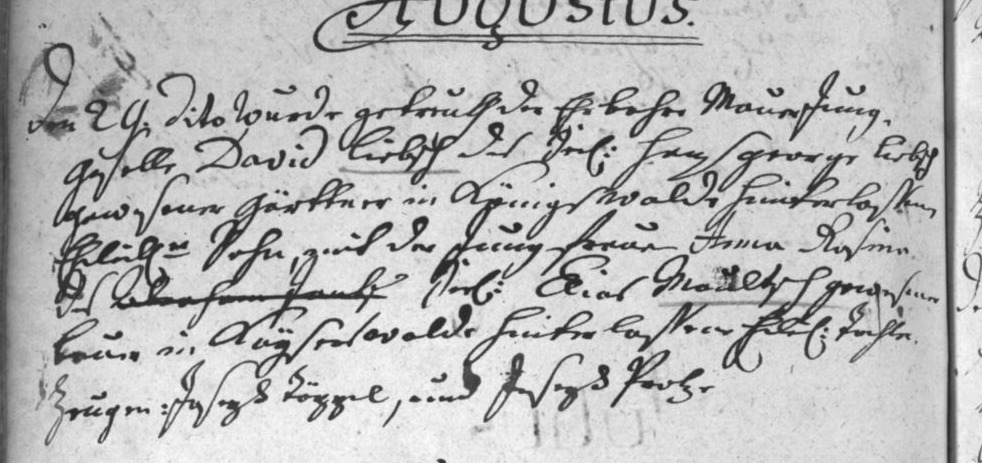 Augustus.
Den 24. dito wurde getrauth der Ehrbahre Maurer Jung
geselle David Liebsch des Seel: Hans George Liebsch
gewesener Gärttner in Königswalde hinterlassene
Ehelich Sohn, mit der Jungfrauen Anna Rosina
des Seel: Elias Maültsch gewesener
bauer in Kayserswalde hinterlassene Ehel: Tochter.
Zeugen: Joseph Töppel, und Joseph Protze